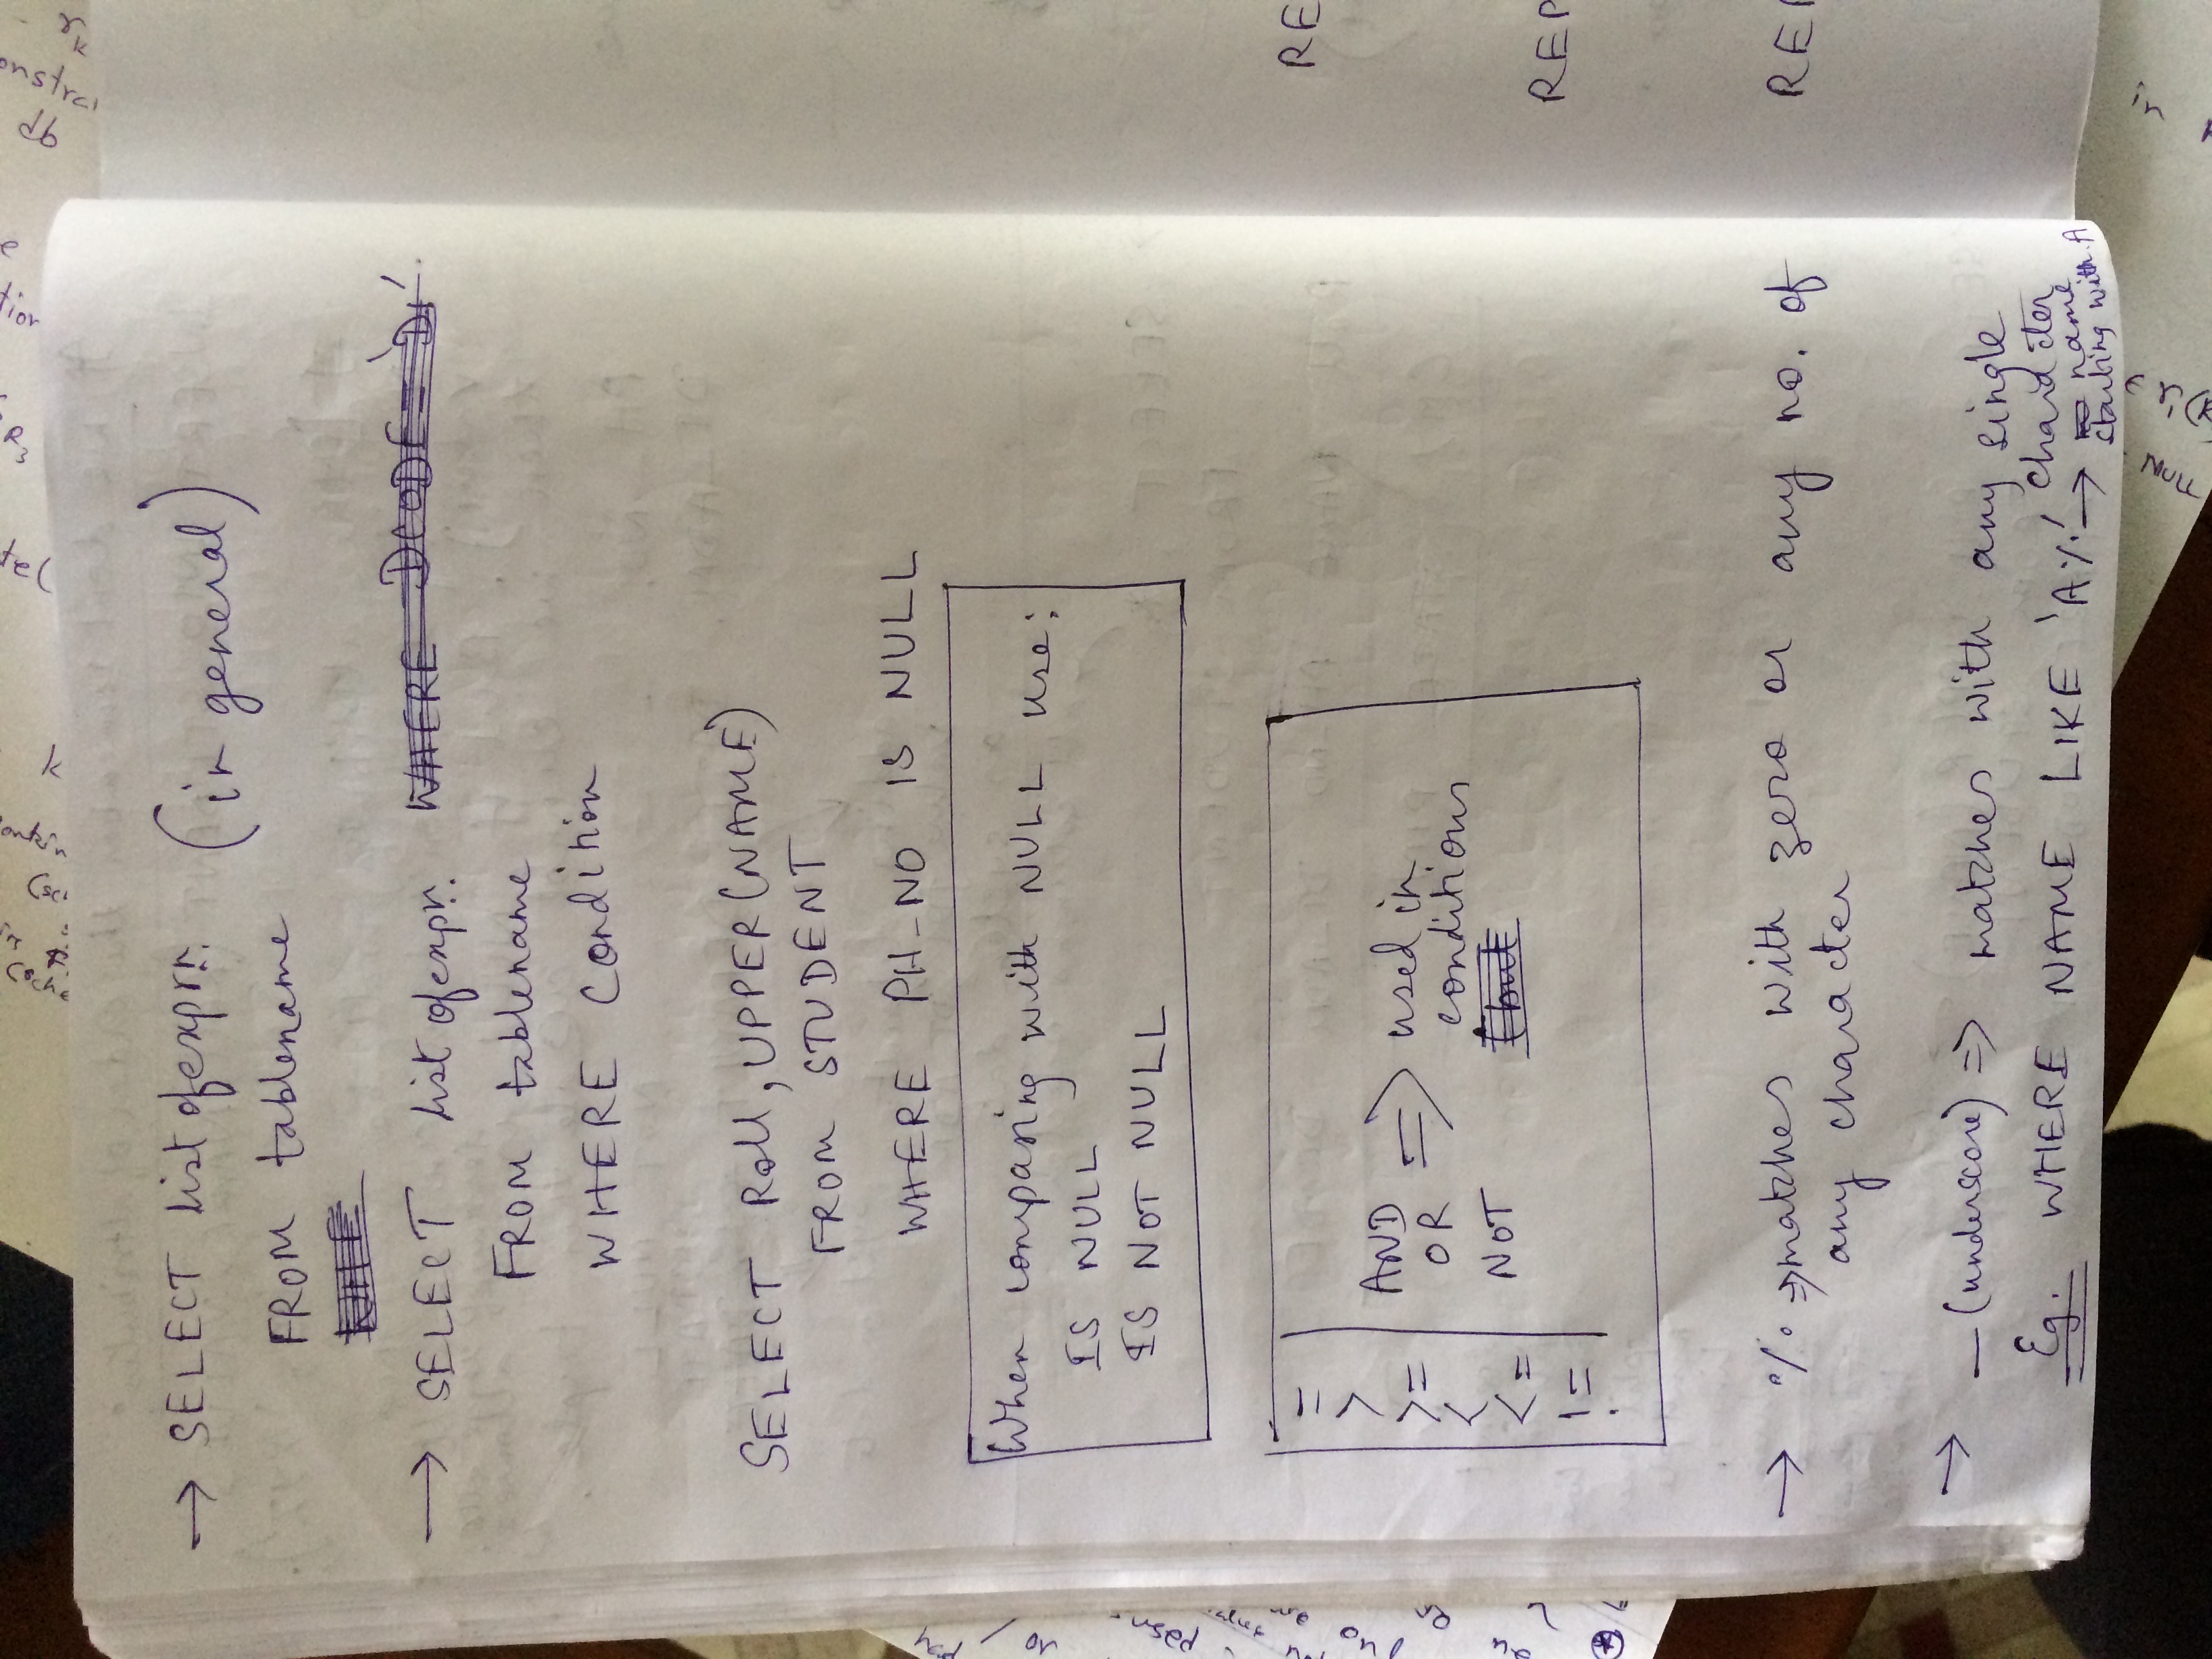 → SELECT list of exprn. (in general)
FROM tablename
WHE
→ SELECT list of expn. WHERE DCODE = 'D1'.
FROM tablename
WHERE Condition
SELECT Roll, UPPER(NAME)
FROM STUDENT
WHERE PH_NO IS NULL
When comparing with NULL use:
IS NULL
IS NOT NULL
=
>
>=
<
<=
!=
AND
OR ⇒ used in
conditions
NOT (but
→ % ⇒ matches with zero or any no. of
any character
→ _ (underscore) ⇒ matches with any single
character
Eg. WHERE NAME LIKE 'A%' → name
starting with A
RE
REP
RE